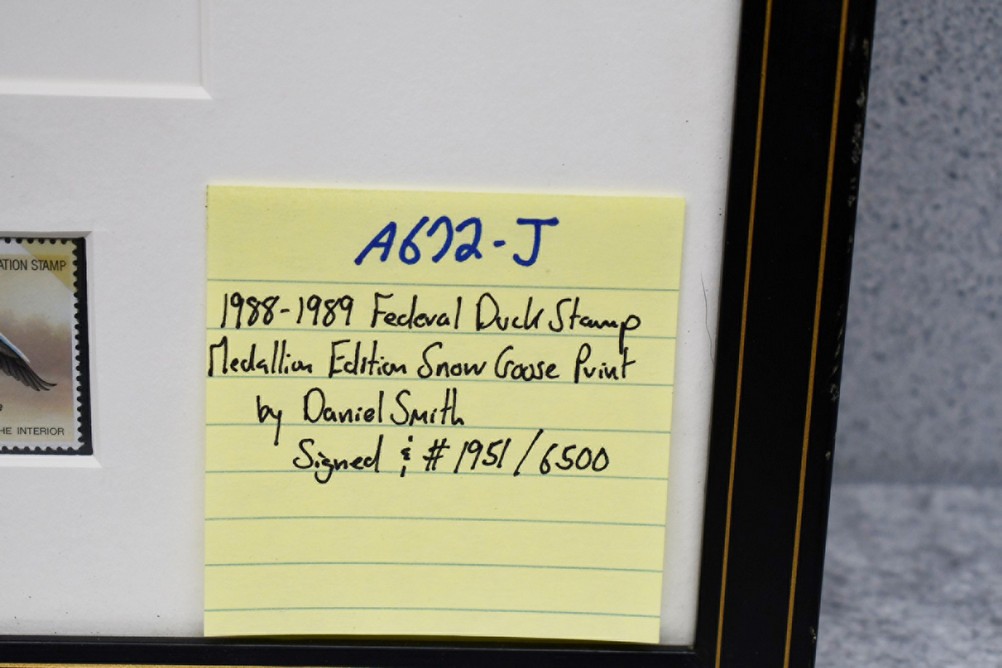 ATION STAMP
HE INTERIOR
A672-J
1988-1989 Federal Duck Stamp
Medallion Edition Snow Goose Print
by Daniel Smith
Signed & #1951/6500